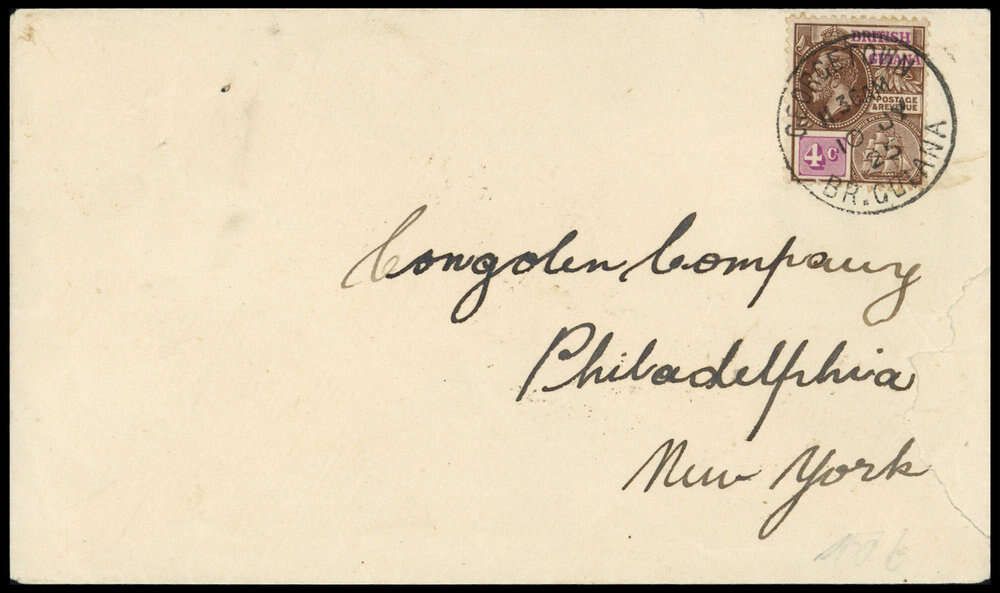 BRITISH
GUIANA
POSTAGE
& REVENUE
4 C
GEORGETOWN
10 JY
22
BR. GUIANA
Congolen Company
Philadelphia
New York